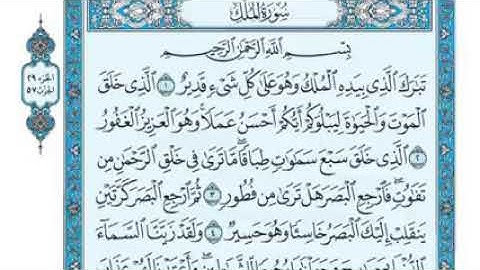 سُورَةُ المُلْكِ
بِسْمِ اللَّهِ الرَّحْمَٰنِ الرَّحِيمِ
الجزء ٢٩
الحزب ٥٧
تَبَارَكَ الَّذِي بِيَدِهِ الْمُلْكُ وَهُوَ عَلَىٰ كُلِّ شَيْءٍ قَدِيرٌ ١ الَّذِي خَلَقَ
الْمَوْتَ وَالْحَيَوٰةَ لِيَبْلُوَكُمْ أَيُّكُمْ أَحْسَنُ عَمَلًا وَهُوَ الْعَزِيزُ الْغَفُورُ
٢ الَّذِي خَلَقَ سَبْعَ سَمَٰوَٰتٍ طِبَاقًا مَّا تَرَىٰ فِي خَلْقِ الرَّحْمَٰنِ مِن
تَفَٰوُتٍ فَارْجِعِ الْبَصَرَ هَلْ تَرَىٰ مِن فُطُورٍ ٣ ثُمَّ ارْجِعِ الْبَصَرَ كَرَّتَيْنِ
يَنقَلِبْ إِلَيْكَ الْبَصَرُ خَاسِئًا وَهُوَ حَسِيرٌ ٤ وَلَقَدْ زَيَّنَّا السَّمَآءَ